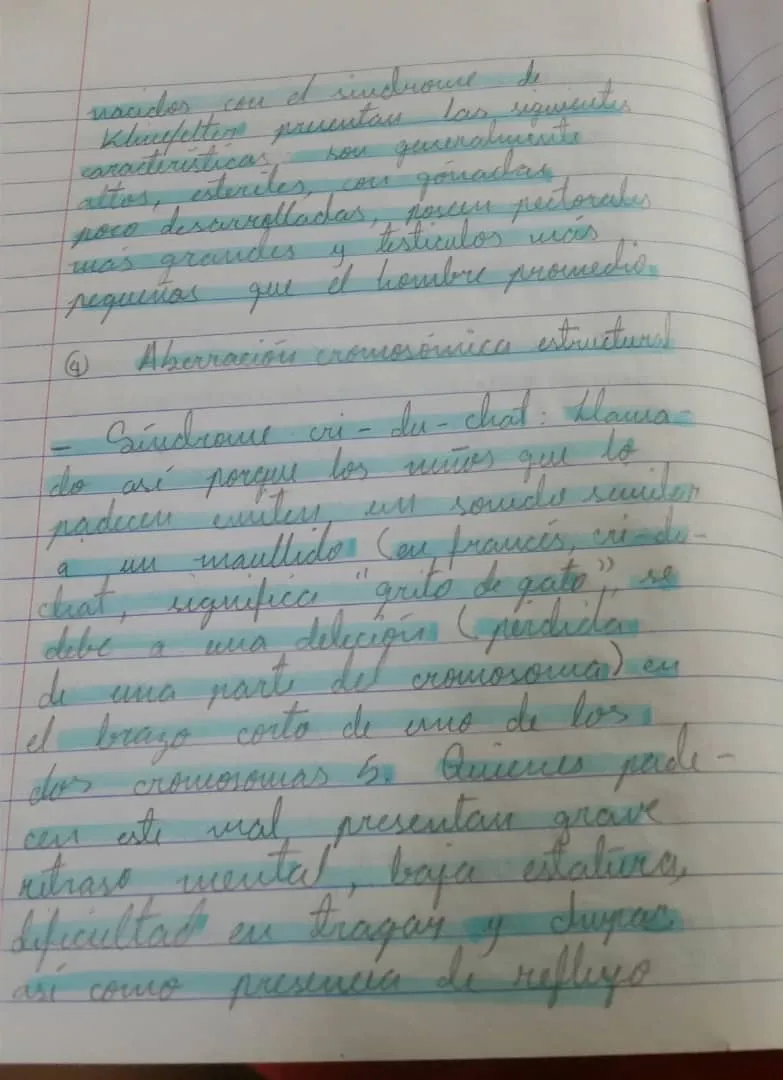 nacidos con el síndrome de
Klinefelter presentan las siguientes
características, son generalmente
altos, estériles, con gónadas
poco desarrolladas, poseen pectorales
más grandes y testículos más
pequeños que el hombre promedio.
④ Aberración cromosómica estructural
- Síndrome cri-du-chat: Llama-
do así porque los niños que lo
padecen emiten un sonido similar
a un maullido (en francés, cri-du-
chat, significa "grito de gato", se
debe a una deleción (pérdida
de una parte del cromosoma) en
el brazo corto de uno de los
dos cromosomas 5. Quienes pade-
cen este mal presentan grave
retraso mental, baja estatura,
dificultad en tragar y chupar
así como presencia de reflujo